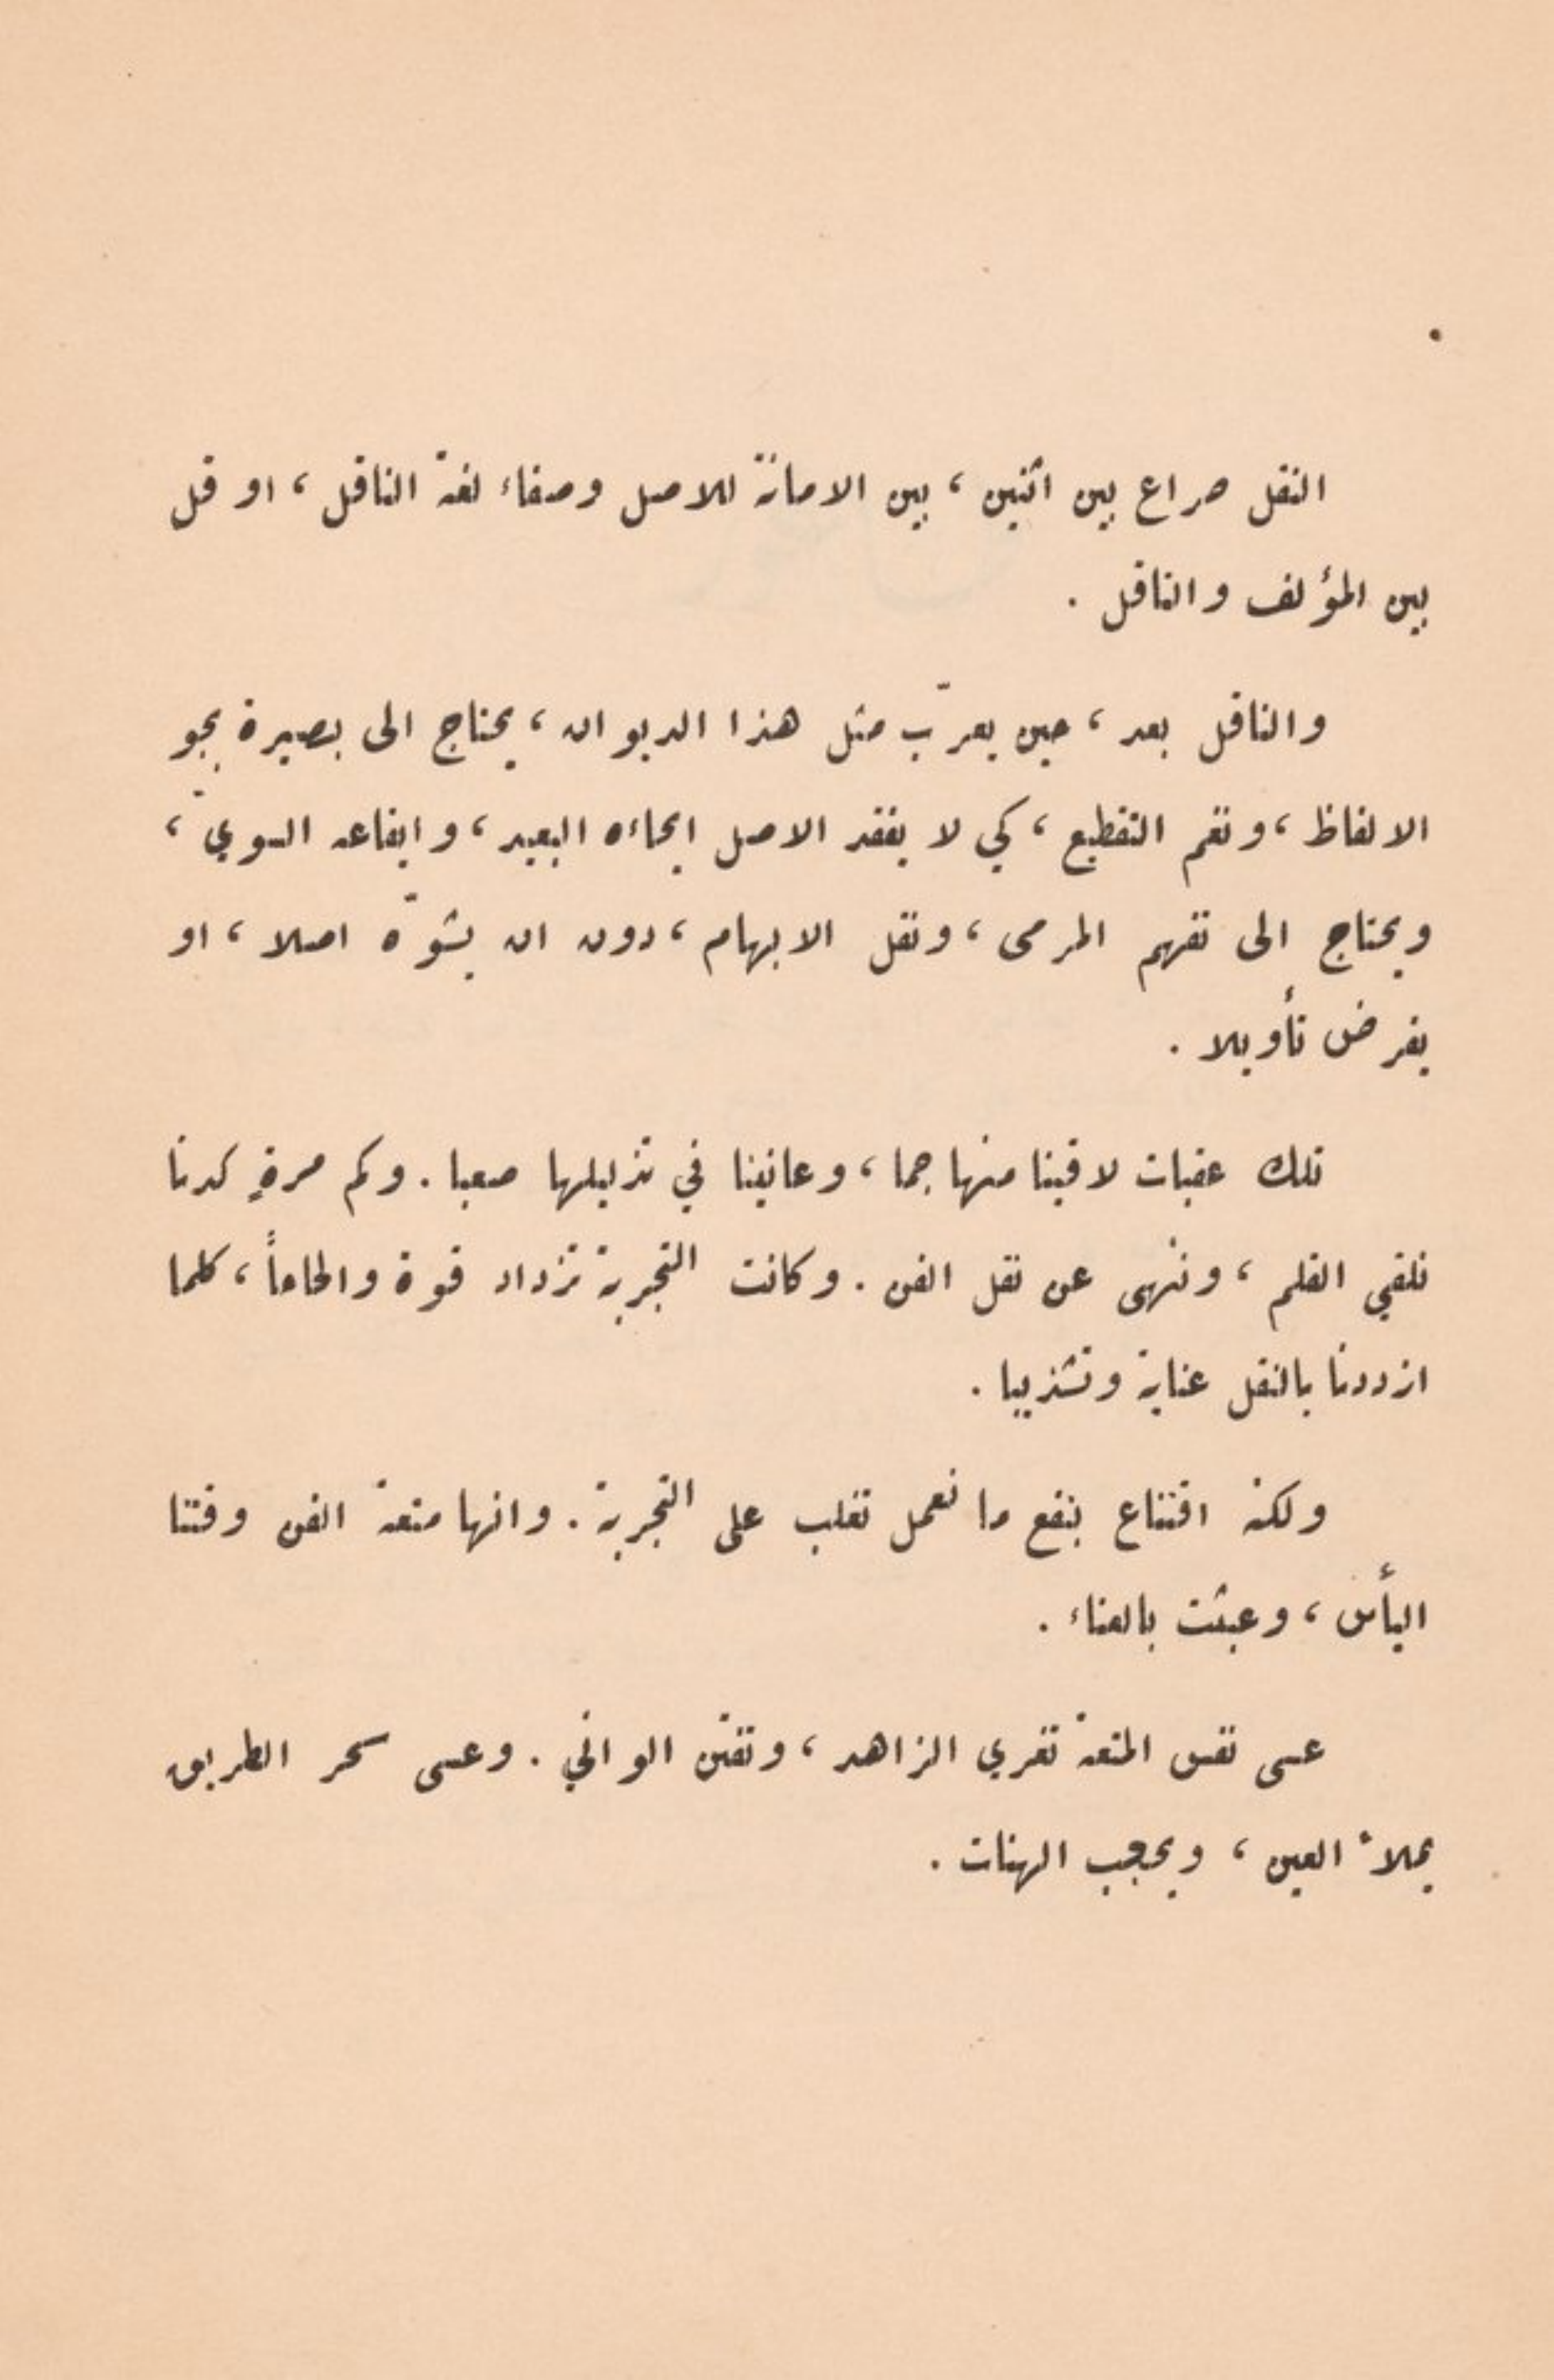 النقل صراع بين اثنين ، بين الامانة للاصل وصفاء لغة الناقل ، او قل
بين المؤلف والناقل .
والناقل بعد ، حين يعرّب مثل هذا الديوان ، يحتاج الى بصيرة بجو
الالفاظ ، ونغم التقطيع ، كي لا يفقد الاصل ايحاءه البعيد ، وايقاعه السويّ ،
ويحتاج الى تفهم المرمى ، ونقل الابهام ، دون ان يشوّه اصلا ، او
يفرض تأويلا .
تلك عقبات لاقينا منها جما ، وعانينا في تذليلها صعبا . وكم مرةٍ كدنا
نلقي القلم ، وننهى عن نقل الفن . وكانت التجربة تزداد قوة والحاحاً ، كلما
ازددنا بالنقل عناية وتشذيبا .
ولكنه اقتناع بنفع ما نعمل تغلب على التجربة . وانها متعة الفن وقتنا
اليأس ، وعبثت بالعناء .
عسى نفس المتعة تغري الزاهد ، وتفتن الواني . وعسى سحر الطريق
يملأ العين ، ويحجب الهنات .